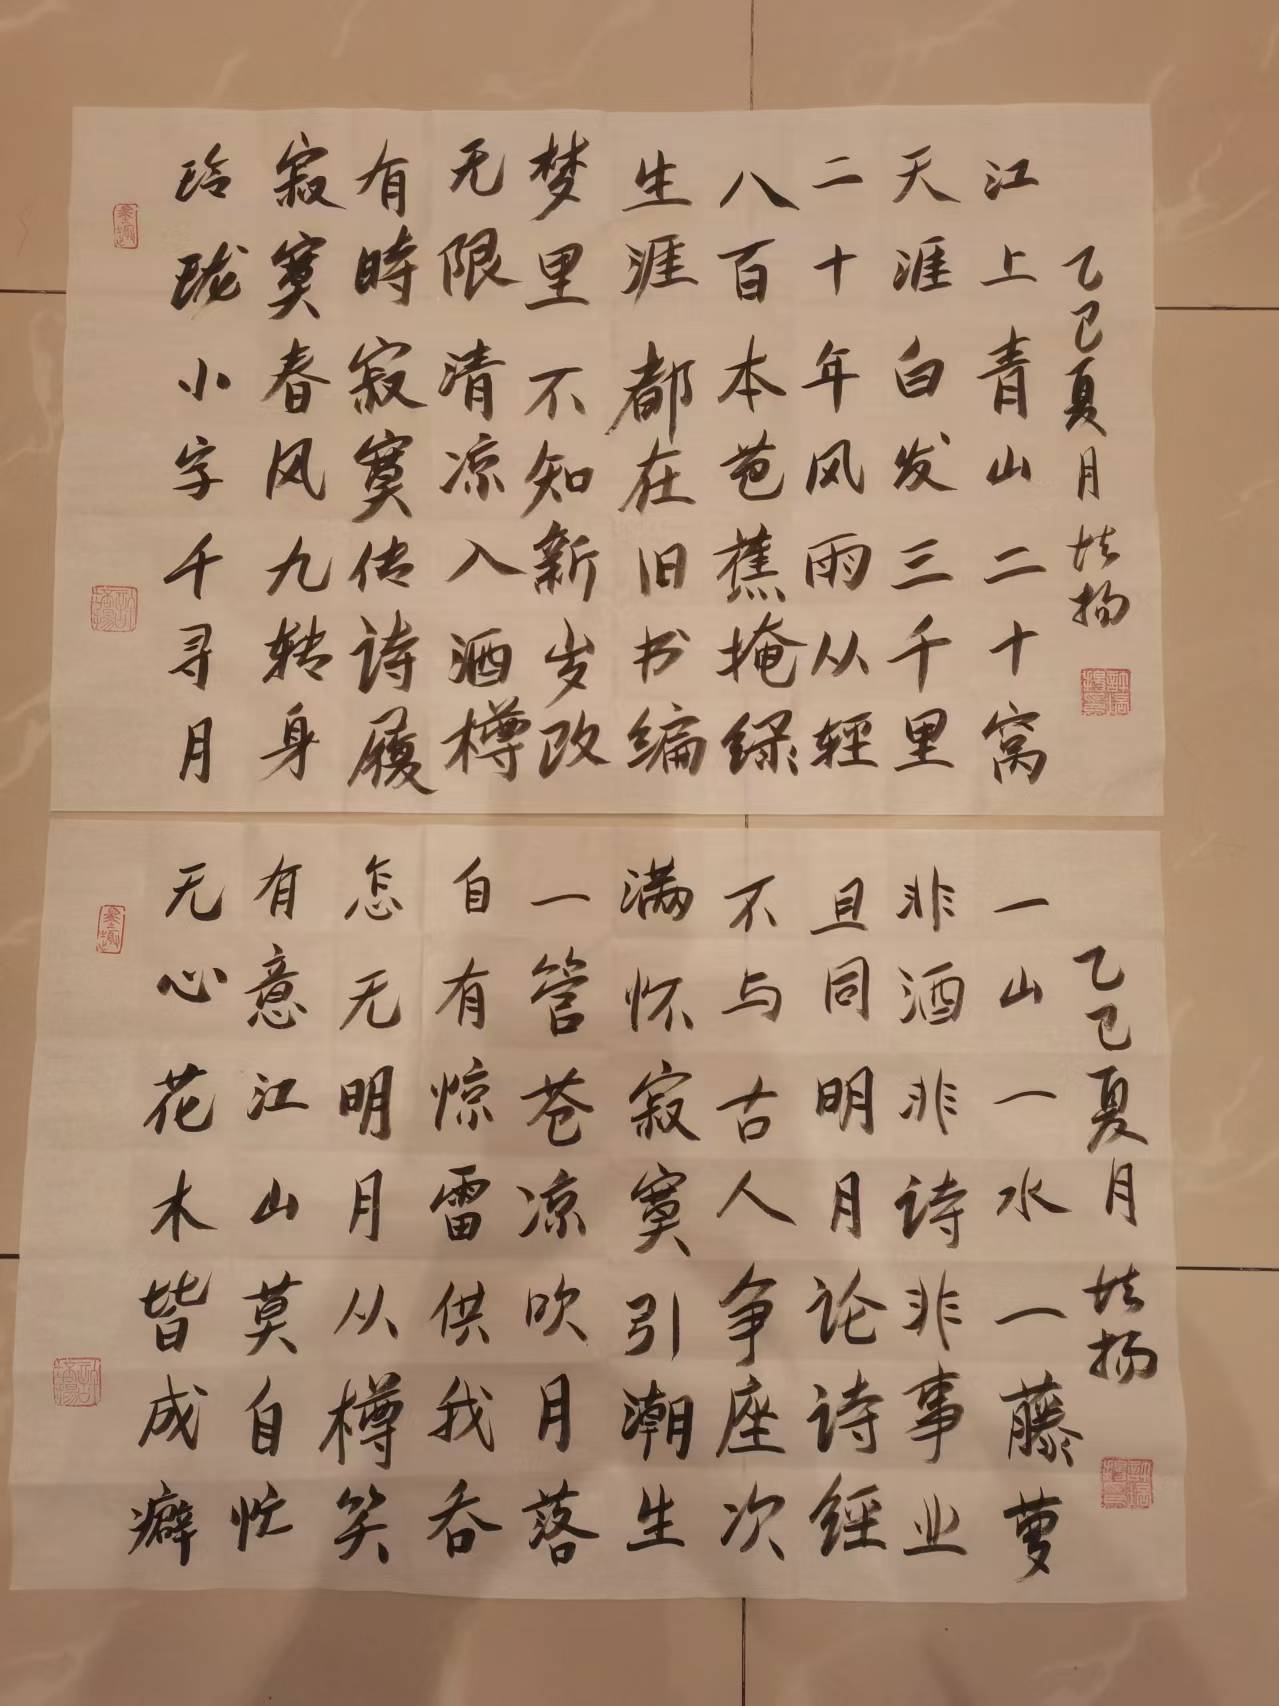 玲珑小字千寻月
寂寞春风九转身
有時寂寞传诗履
无限清凉入酒樽
梦里不知新岁改
生涯都在旧书编
八百本芭蕉掩绿
二十年风雨从轻
天涯白发三千里
江上青山二十窝
乙巳夏月 扬
无心花木皆成癖
有意江山莫自忙
怎无明月从樽笑
自有惊雷供我吞
一管苍凉吹月落
满怀寂寞引潮生
不与古人争座次
且同明月论诗经
非酒非诗非事业
一山一水一藤萝
乙巳夏月 扬